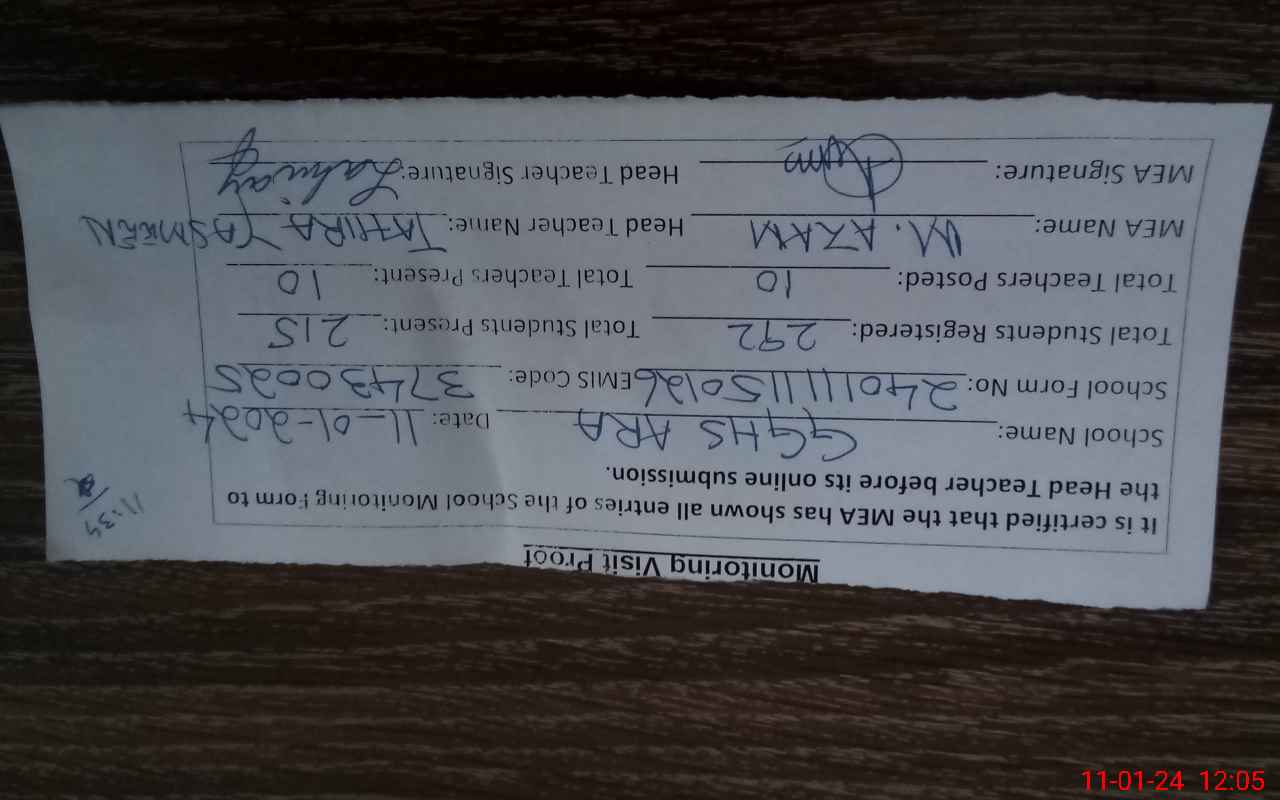 Monitoring Visit Proof
It is certified that the MEA has shown all entries of the School Monitoring Form to
the Head Teacher before its online submission.
11:34
School Name: GGHS ARA Date: 11-01-2024
School Form No: 2401111150126 EMIS Code: 37430025
Total Students Registered: 292 Total Students Present: 215
Total Teachers Posted: 10 Total Teachers Present: 10
MEA Name: M. AZAM Head Teacher Name: TAHIRA YASMEEN
MEA Signature: Head Teacher Signature:
11-01-24 12:05